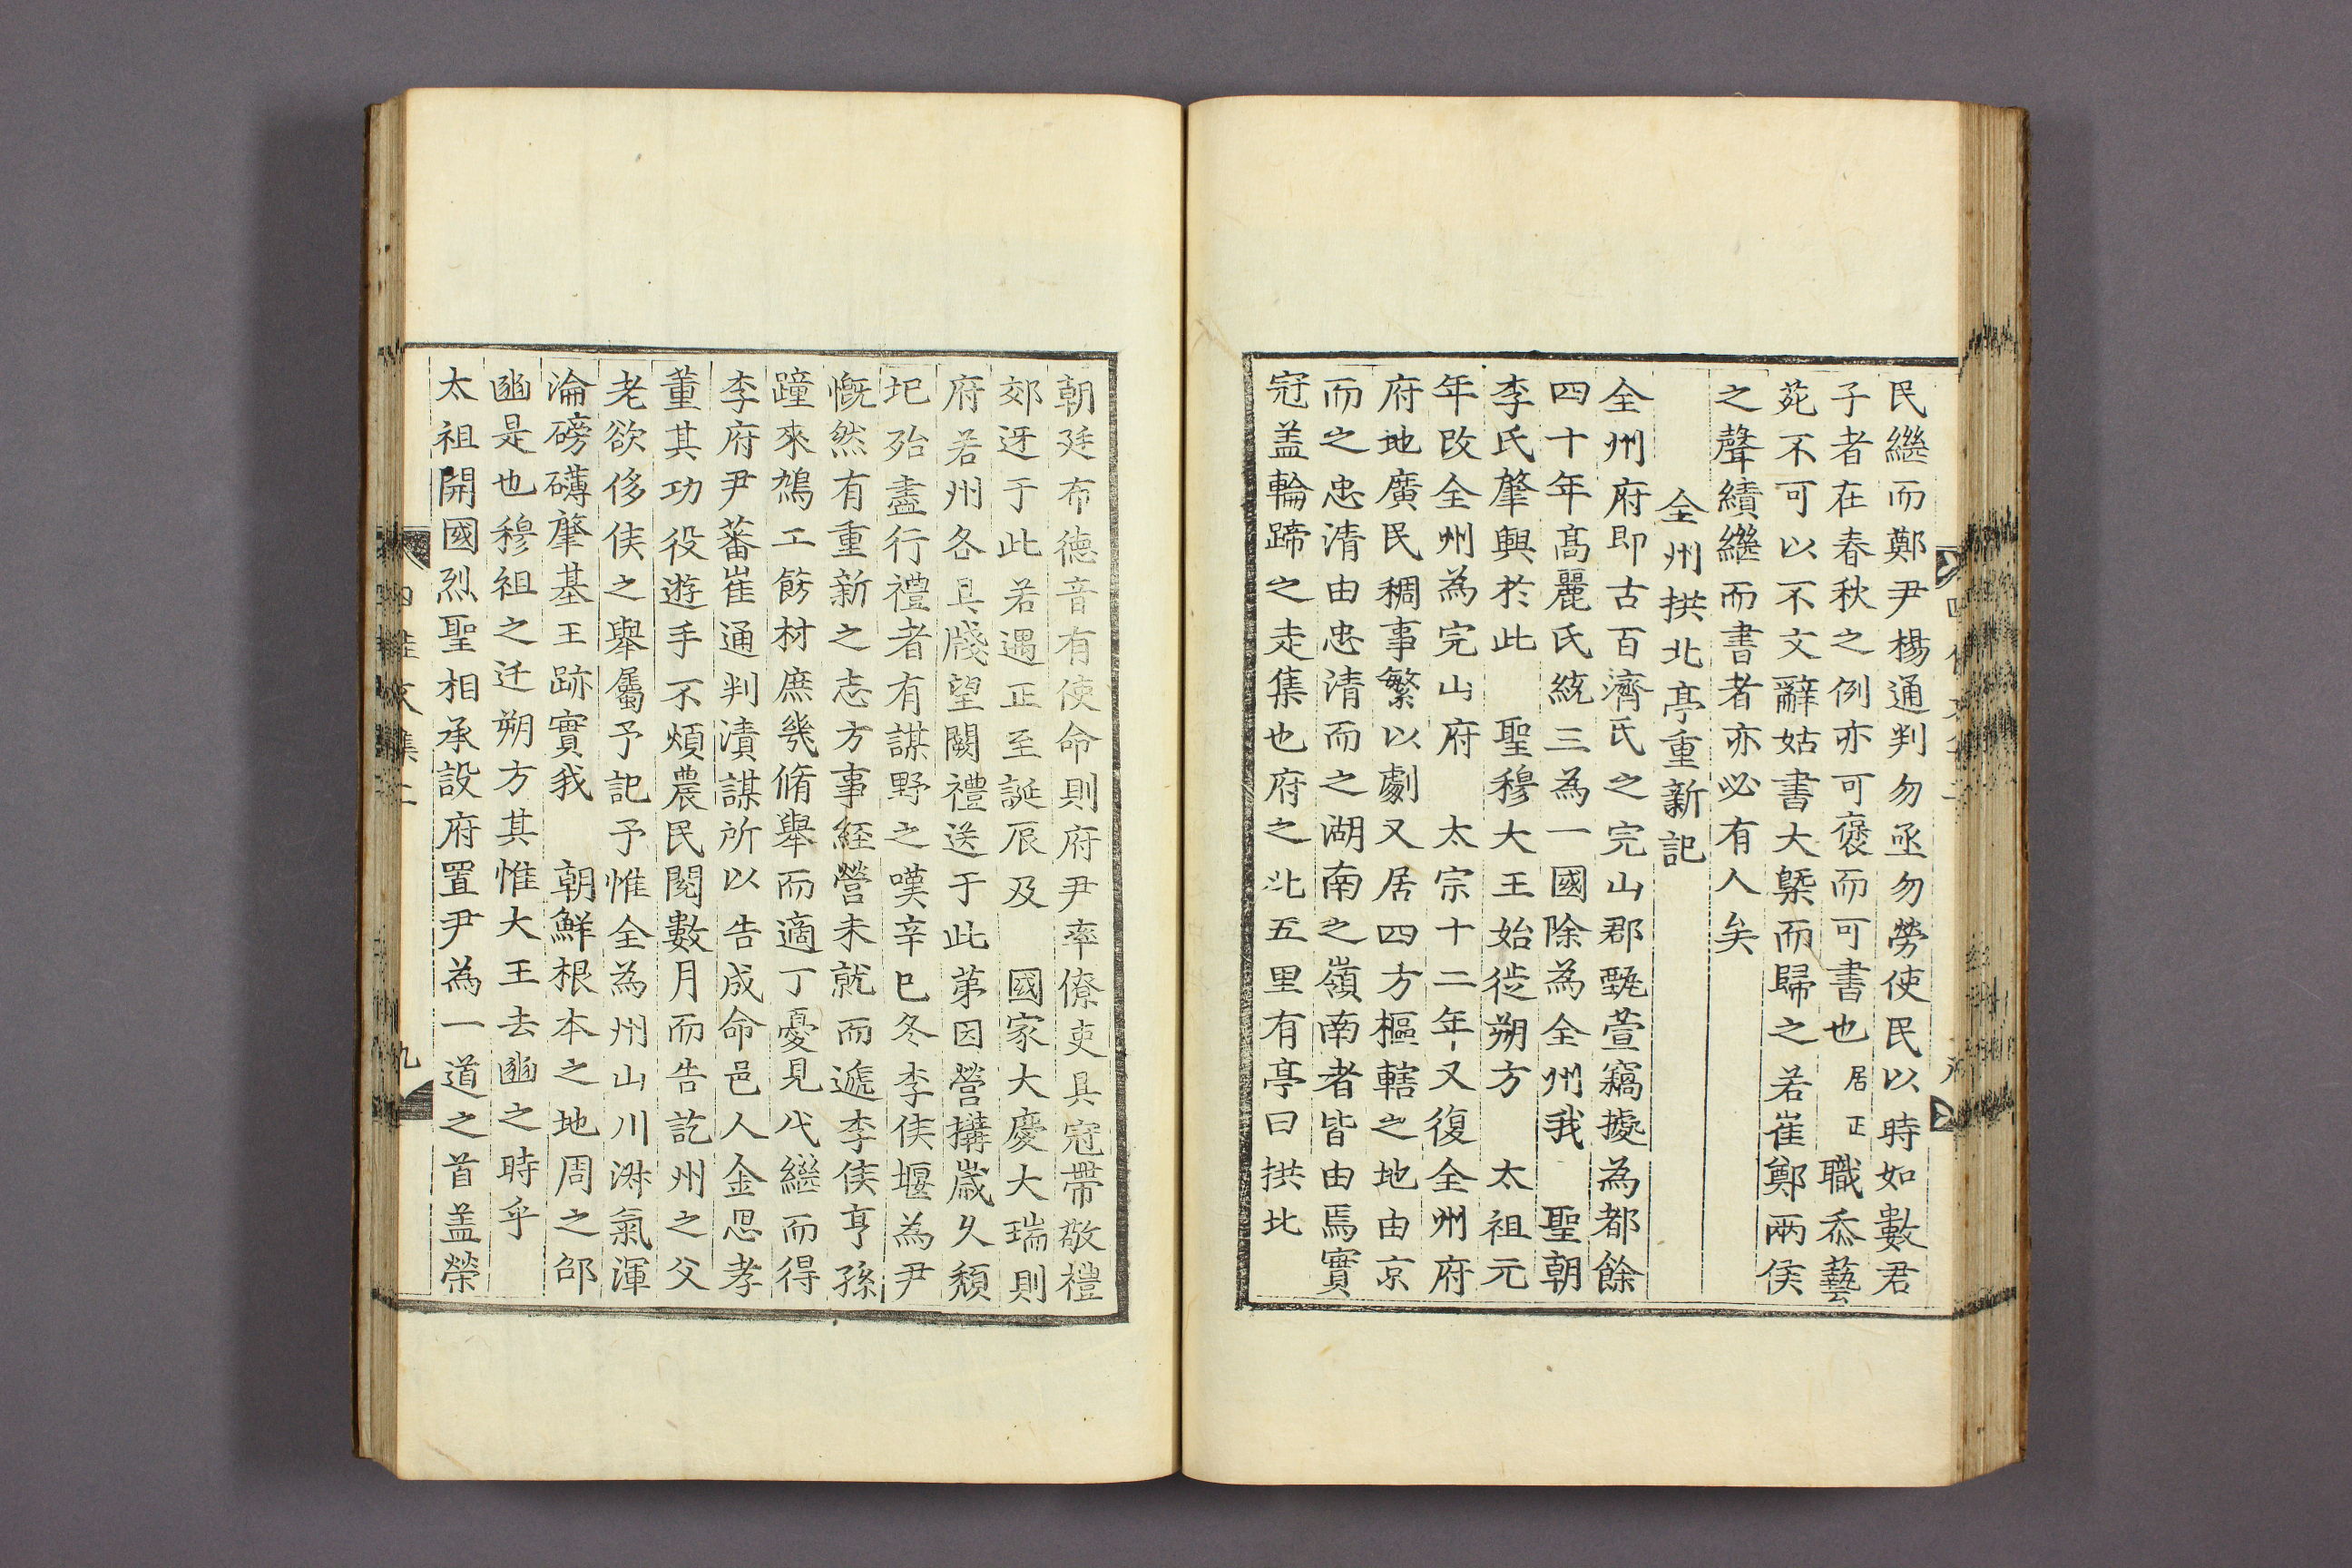 民繼而鄭尹楊通判勿亟勿勞使民以時如數君
子者在春秋之例亦可褒而可書也居正職忝藝
苑不可以不文辭姑書大槩而歸之若崔鄭兩侯
之聲績繼而書者亦必有人矣
全州拱北亭重新記
全州府即古百濟氏之完山郡甄萱竊據為都餘
四十年高麗氏統三為一國除為全州我 聖朝
李氏肇興於此 聖穆大王始徙朔方 太祖元
年改全州為完山府 太宗十二年又復全州府
府地廣民稠事繁以劇又居四方樞轄之地由京
而之忠清由忠清而之湖南之嶺南者皆由焉實
冠盖輪蹄之走集也府之北五里有亭曰拱北
朝廷布德音有使命則府尹率僚吏具冠帶敬禮
郊迓于此若遇正至誕辰及 國家大慶大瑞則
府若州各具牋望闕禮送于此第因營搆歲久頹
圯殆盡行禮者有謀野之嘆辛巳冬李侯堰為尹
慨然有重新之志方事經營未就而遞李侯亨孫
踵來鳩工餝材庶幾脩舉而適丁憂見代繼而得
李府尹蕃崔通判漬謀所以告成命邑人金思孝
董其功役遊手不煩農民閱數月而告訖州之父
老欲侈侯之舉屬予記予惟全為州山川淋氣渾
淪磅礴肇基王跡實我 朝鮮根本之地周之邰
豳是也穆祖之迁朔方其惟大王去豳之時乎
太祖開國烈聖相承設府置尹為一道之首盖榮
四佳文集二
九